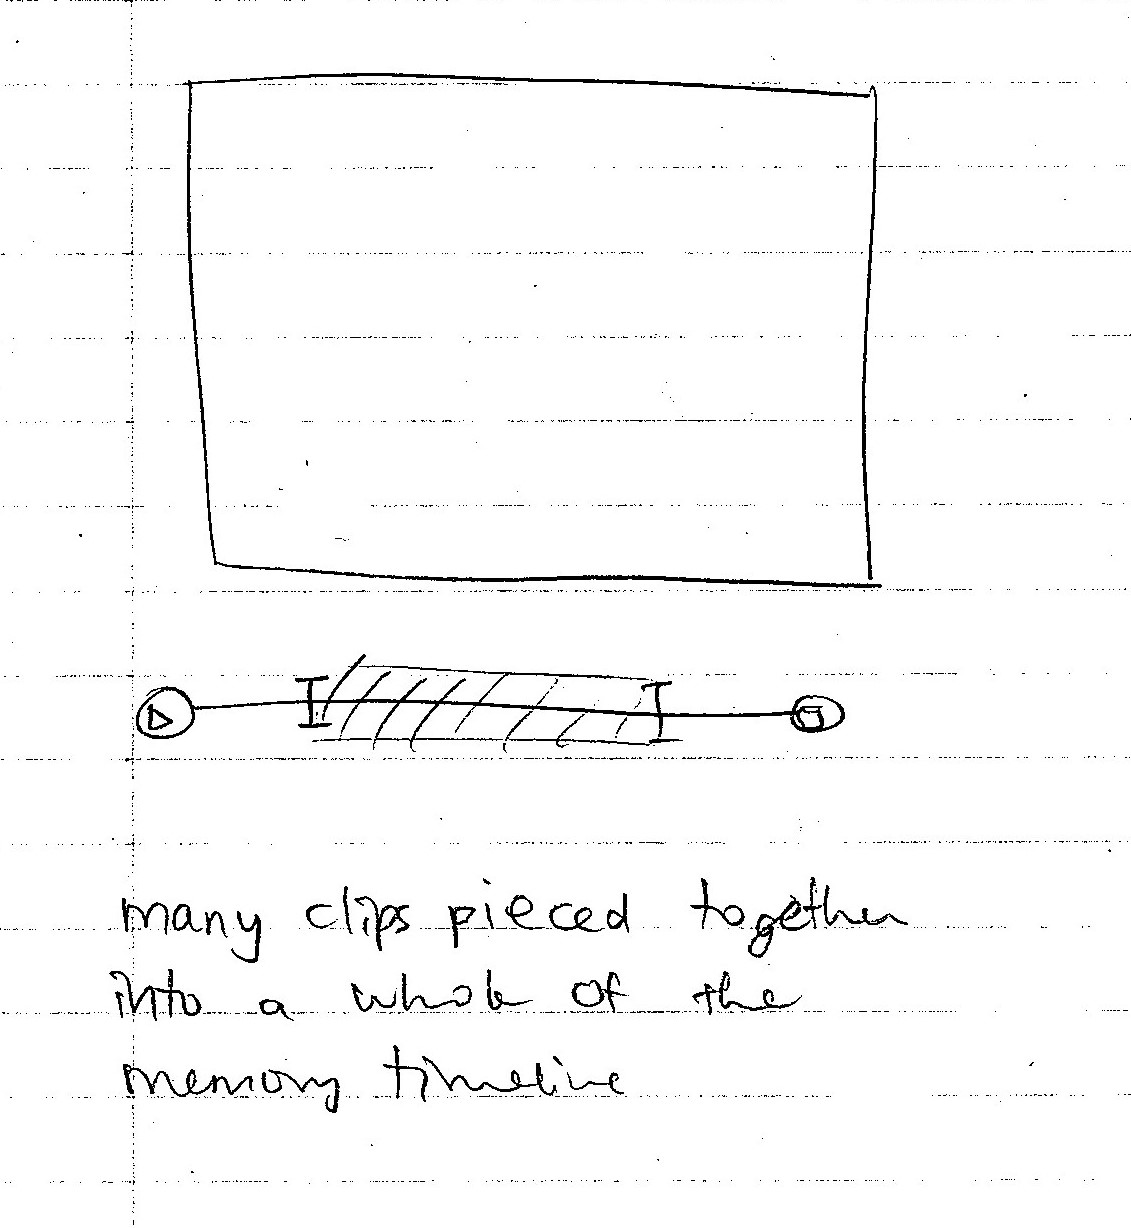 many clips pieced together
into a whole of the
memory timeline